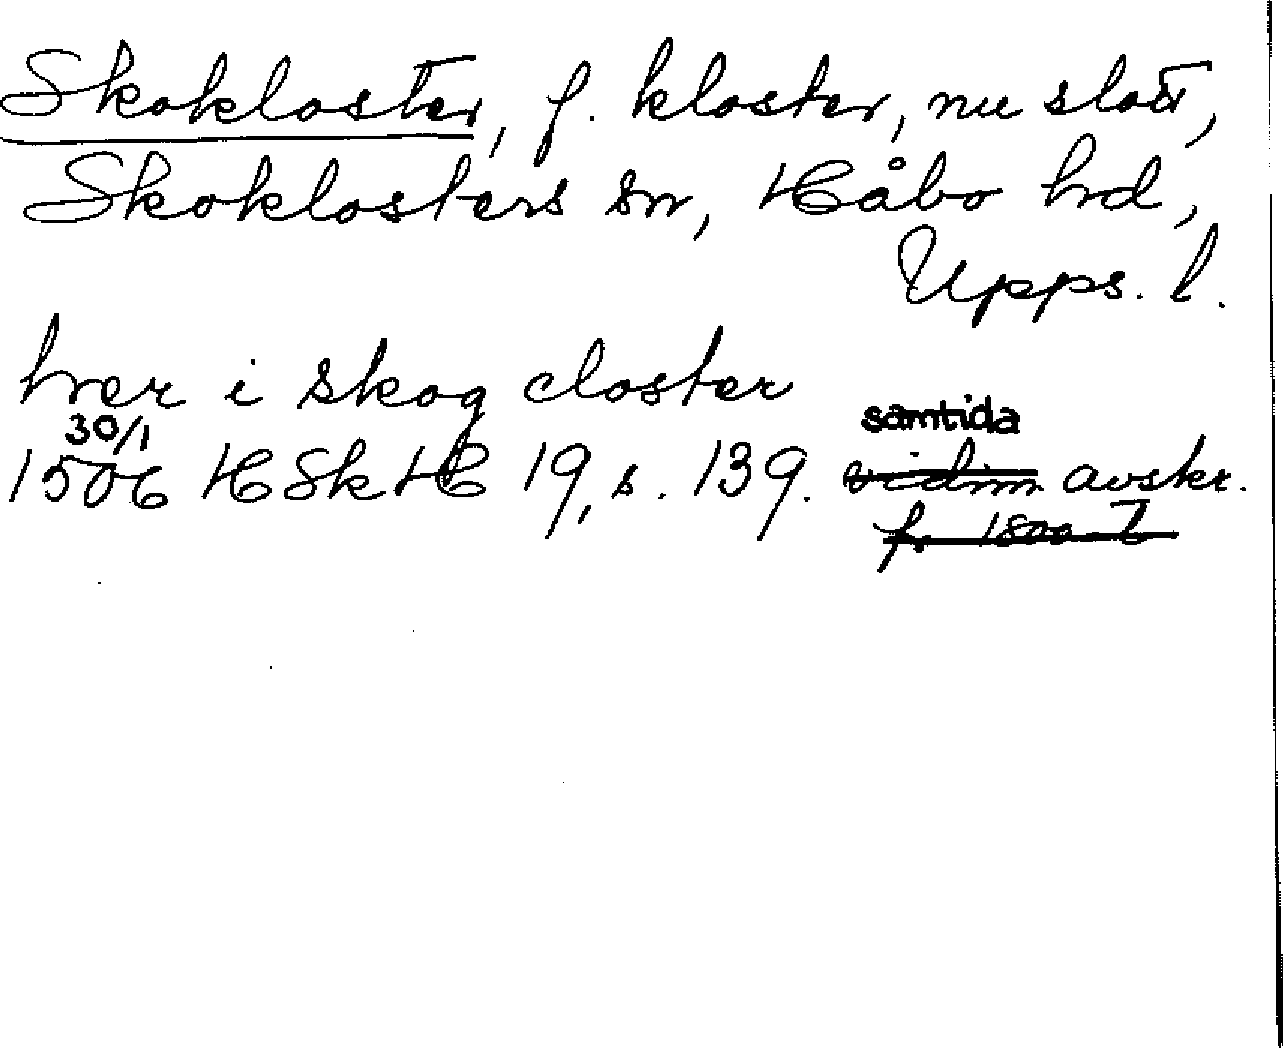 Skokloster, f. kloster, nu slott,
Skoklosters sn, Håbo hd,
Upps. l.
hver i skog closter
30/1
samtida
1506 HSkH 19, s. 139. vidim avskr.
f. 1800-t